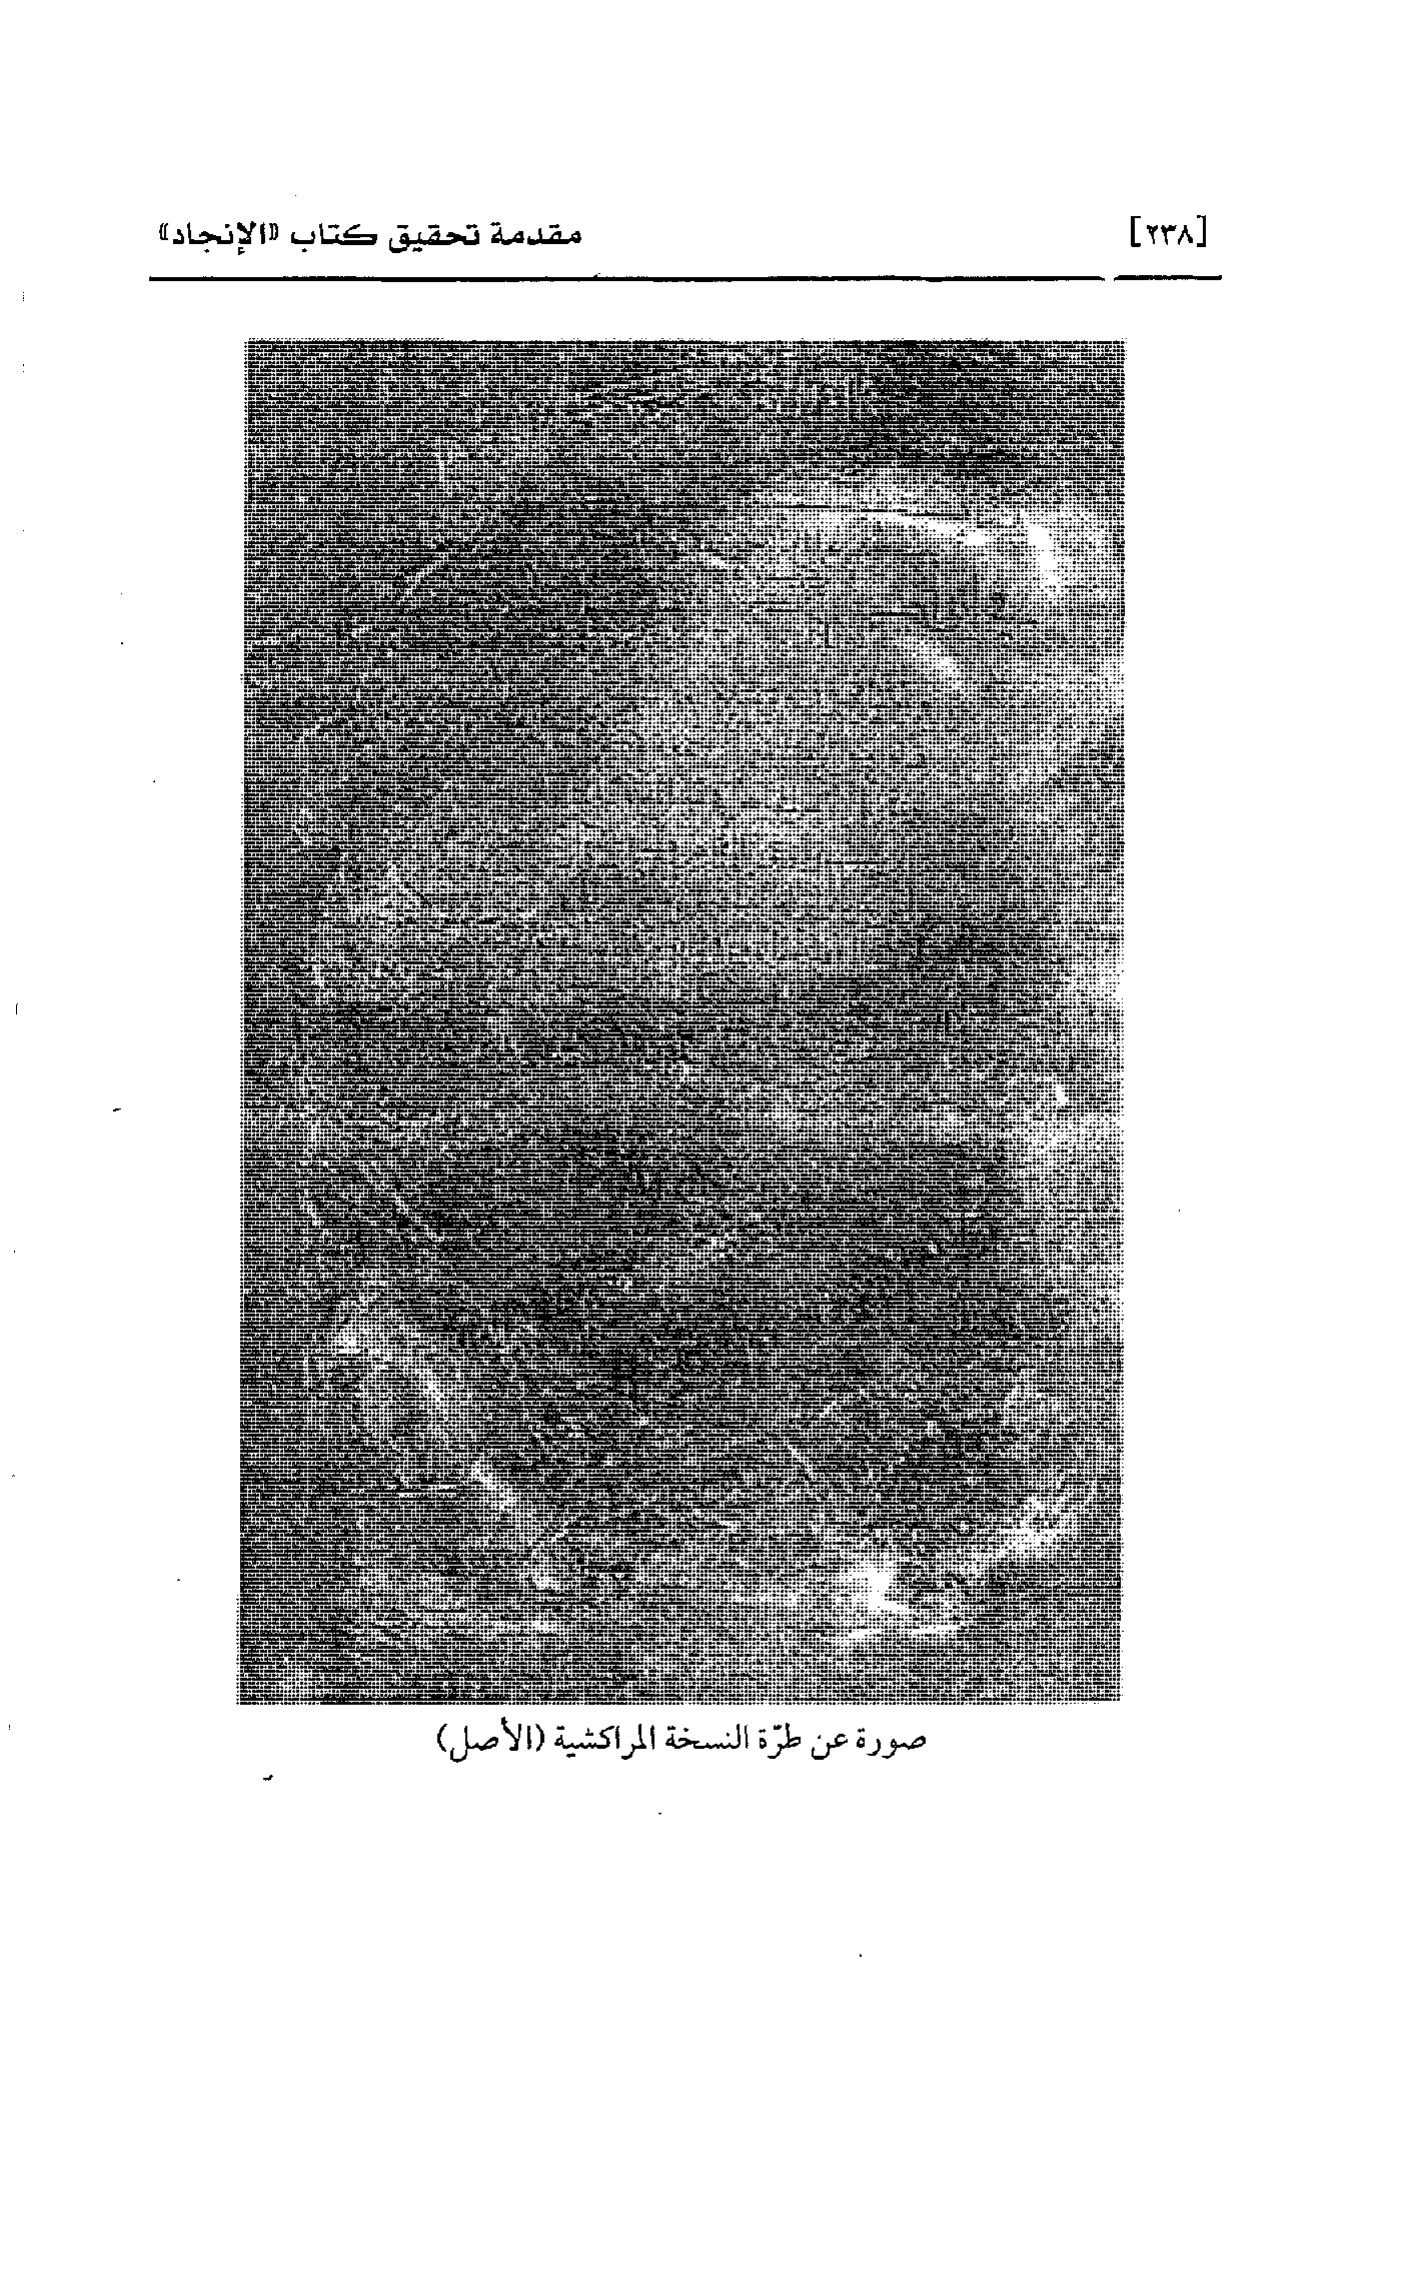 [٢٣٨] مقدمة تحقيق كتاب «الإنجاد»
صورة عن طرّة النسخة المراكشية (الأصل)